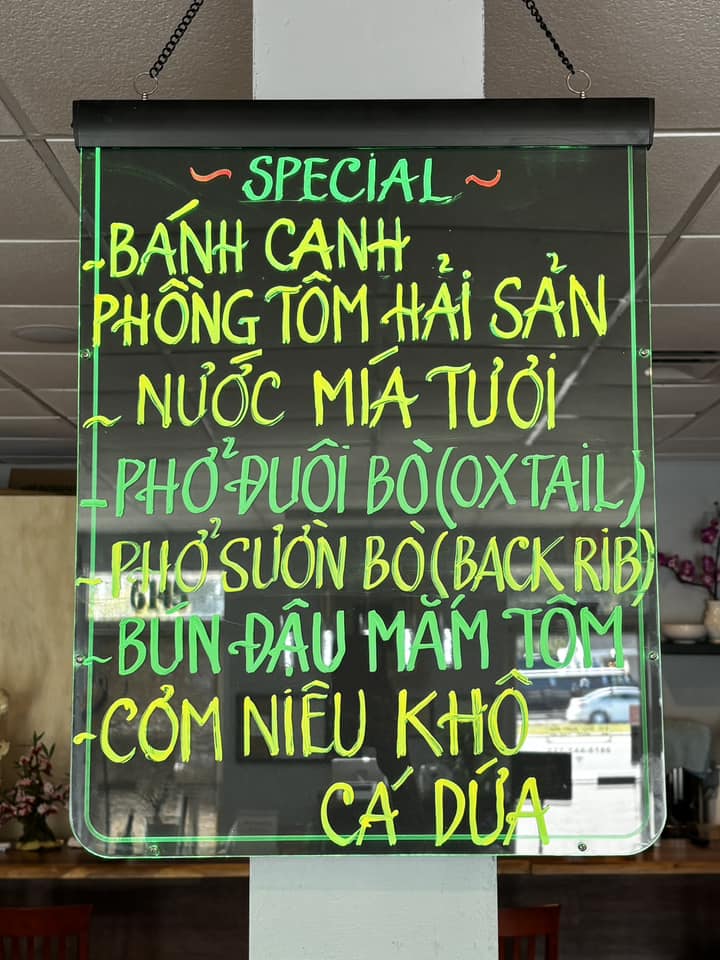 ~ SPECIAL ~
- BÁNH CANH
PHỒNG TÔM HẢI SẢN
~ NƯỚC MÍA TƯƠI
- PHỞ ĐUÔI BÒ (OXTAIL)
~ PHỞ SƯỜN BÒ (BACK RIB)
~ BÚN ĐẬU MẮM TÔM
- CƠM NIÊU KHÔ
CÁ DỨA